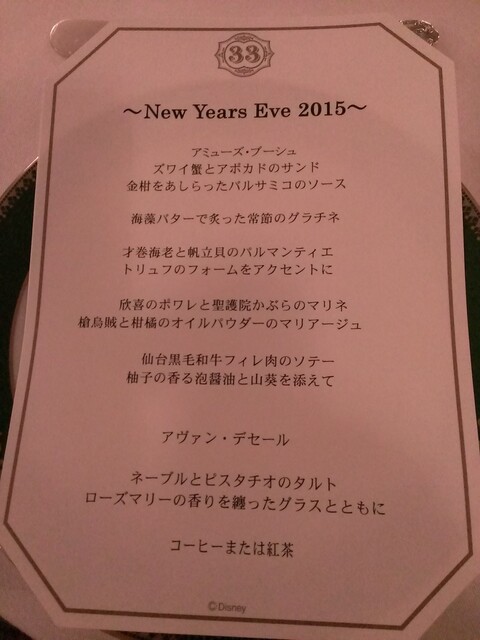 33
~New Years Eve 2015~
アミューズ・ブーシュ
ズワイ蟹とアボカドのサンド
金柑をあしらったバルサミコのソース
海藻バターで炙った常節のグラチネ
才巻海老と帆立貝のパルマンティエ
トリュフのフォームをアクセントに
欣喜のポワレと聖護院かぶらのマリネ
槍烏賊と柑橘のオイルパウダーのマリアージュ
仙台黒毛和牛フィレ肉のソテー
柚子の香る泡醤油と山葵を添えて
アヴァン・デセール
ネーブルとピスタチオのタルト
ローズマリーの香りを纏ったグラスとともに
コーヒーまたは紅茶
©Disney